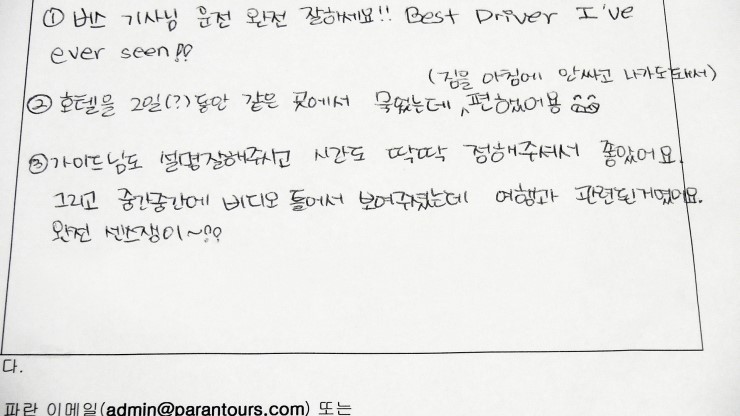 ① 버스 기사님 운전 완전 잘하세요!! Best Driver I've
ever seen!!
(짐을 아침에 안싸고 나가도 돼서)
② 호텔을 2일(?)동안 같은 곳에서 묵었는데 편했어용 ^^
③ 가이드님도 설명잘해주시고 시간도 딱딱 정해주셔서 좋았어요.
그리고 중간중간에 비디오 틀어서 보여주셨는데 여행과 관련된거였어요.
완전 센스쟁이~!!
다.
파란 이메일(admin@parantours.com) 또는